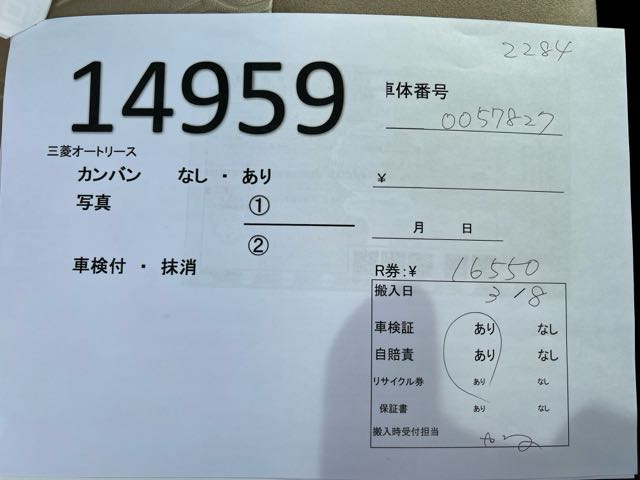 2284
14959
車体番号
0057827
三菱オートリース
カンバン なし ・ あり
¥
写真 ①
②
月 日
車検付 ・ 抹消
R券:¥ 16550
搬入日 3/8
車検証 あり なし
自賠責 あり なし
リサイクル券 あり なし
保証書 あり なし
搬入時受付担当